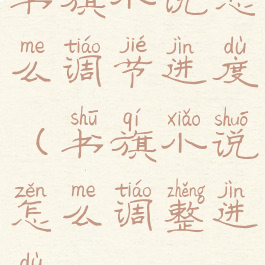 书旗小说怎
me tiáo jié jìn dù
么调节进度
shū qí xiǎo shuō
(书旗小说
zěn me tiáo zhěng jìn
怎么调整进
dù